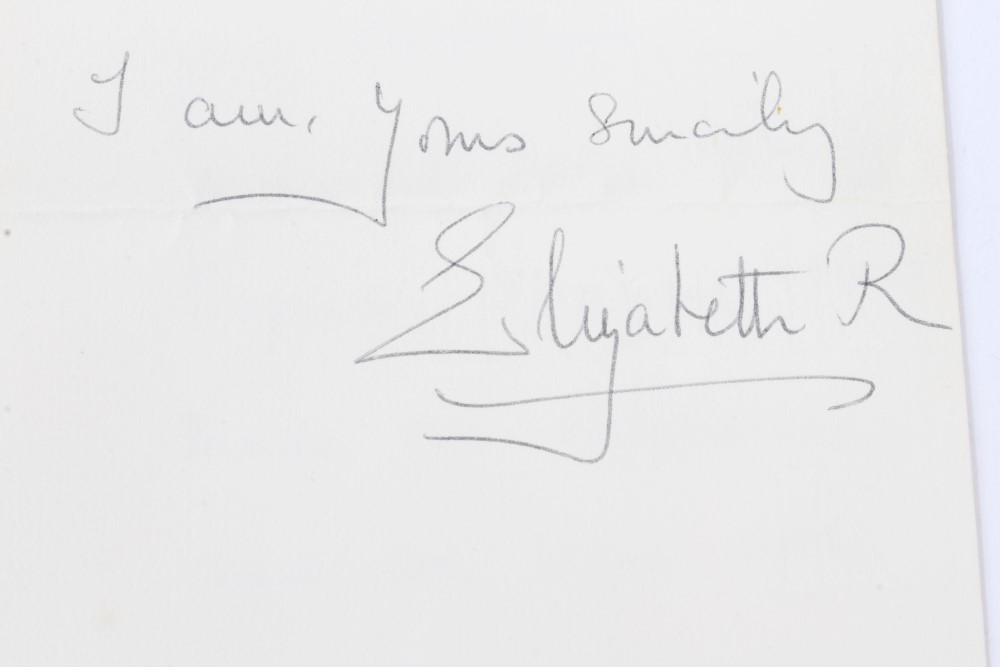 I am, Yours Sincerely
Elizabeth R